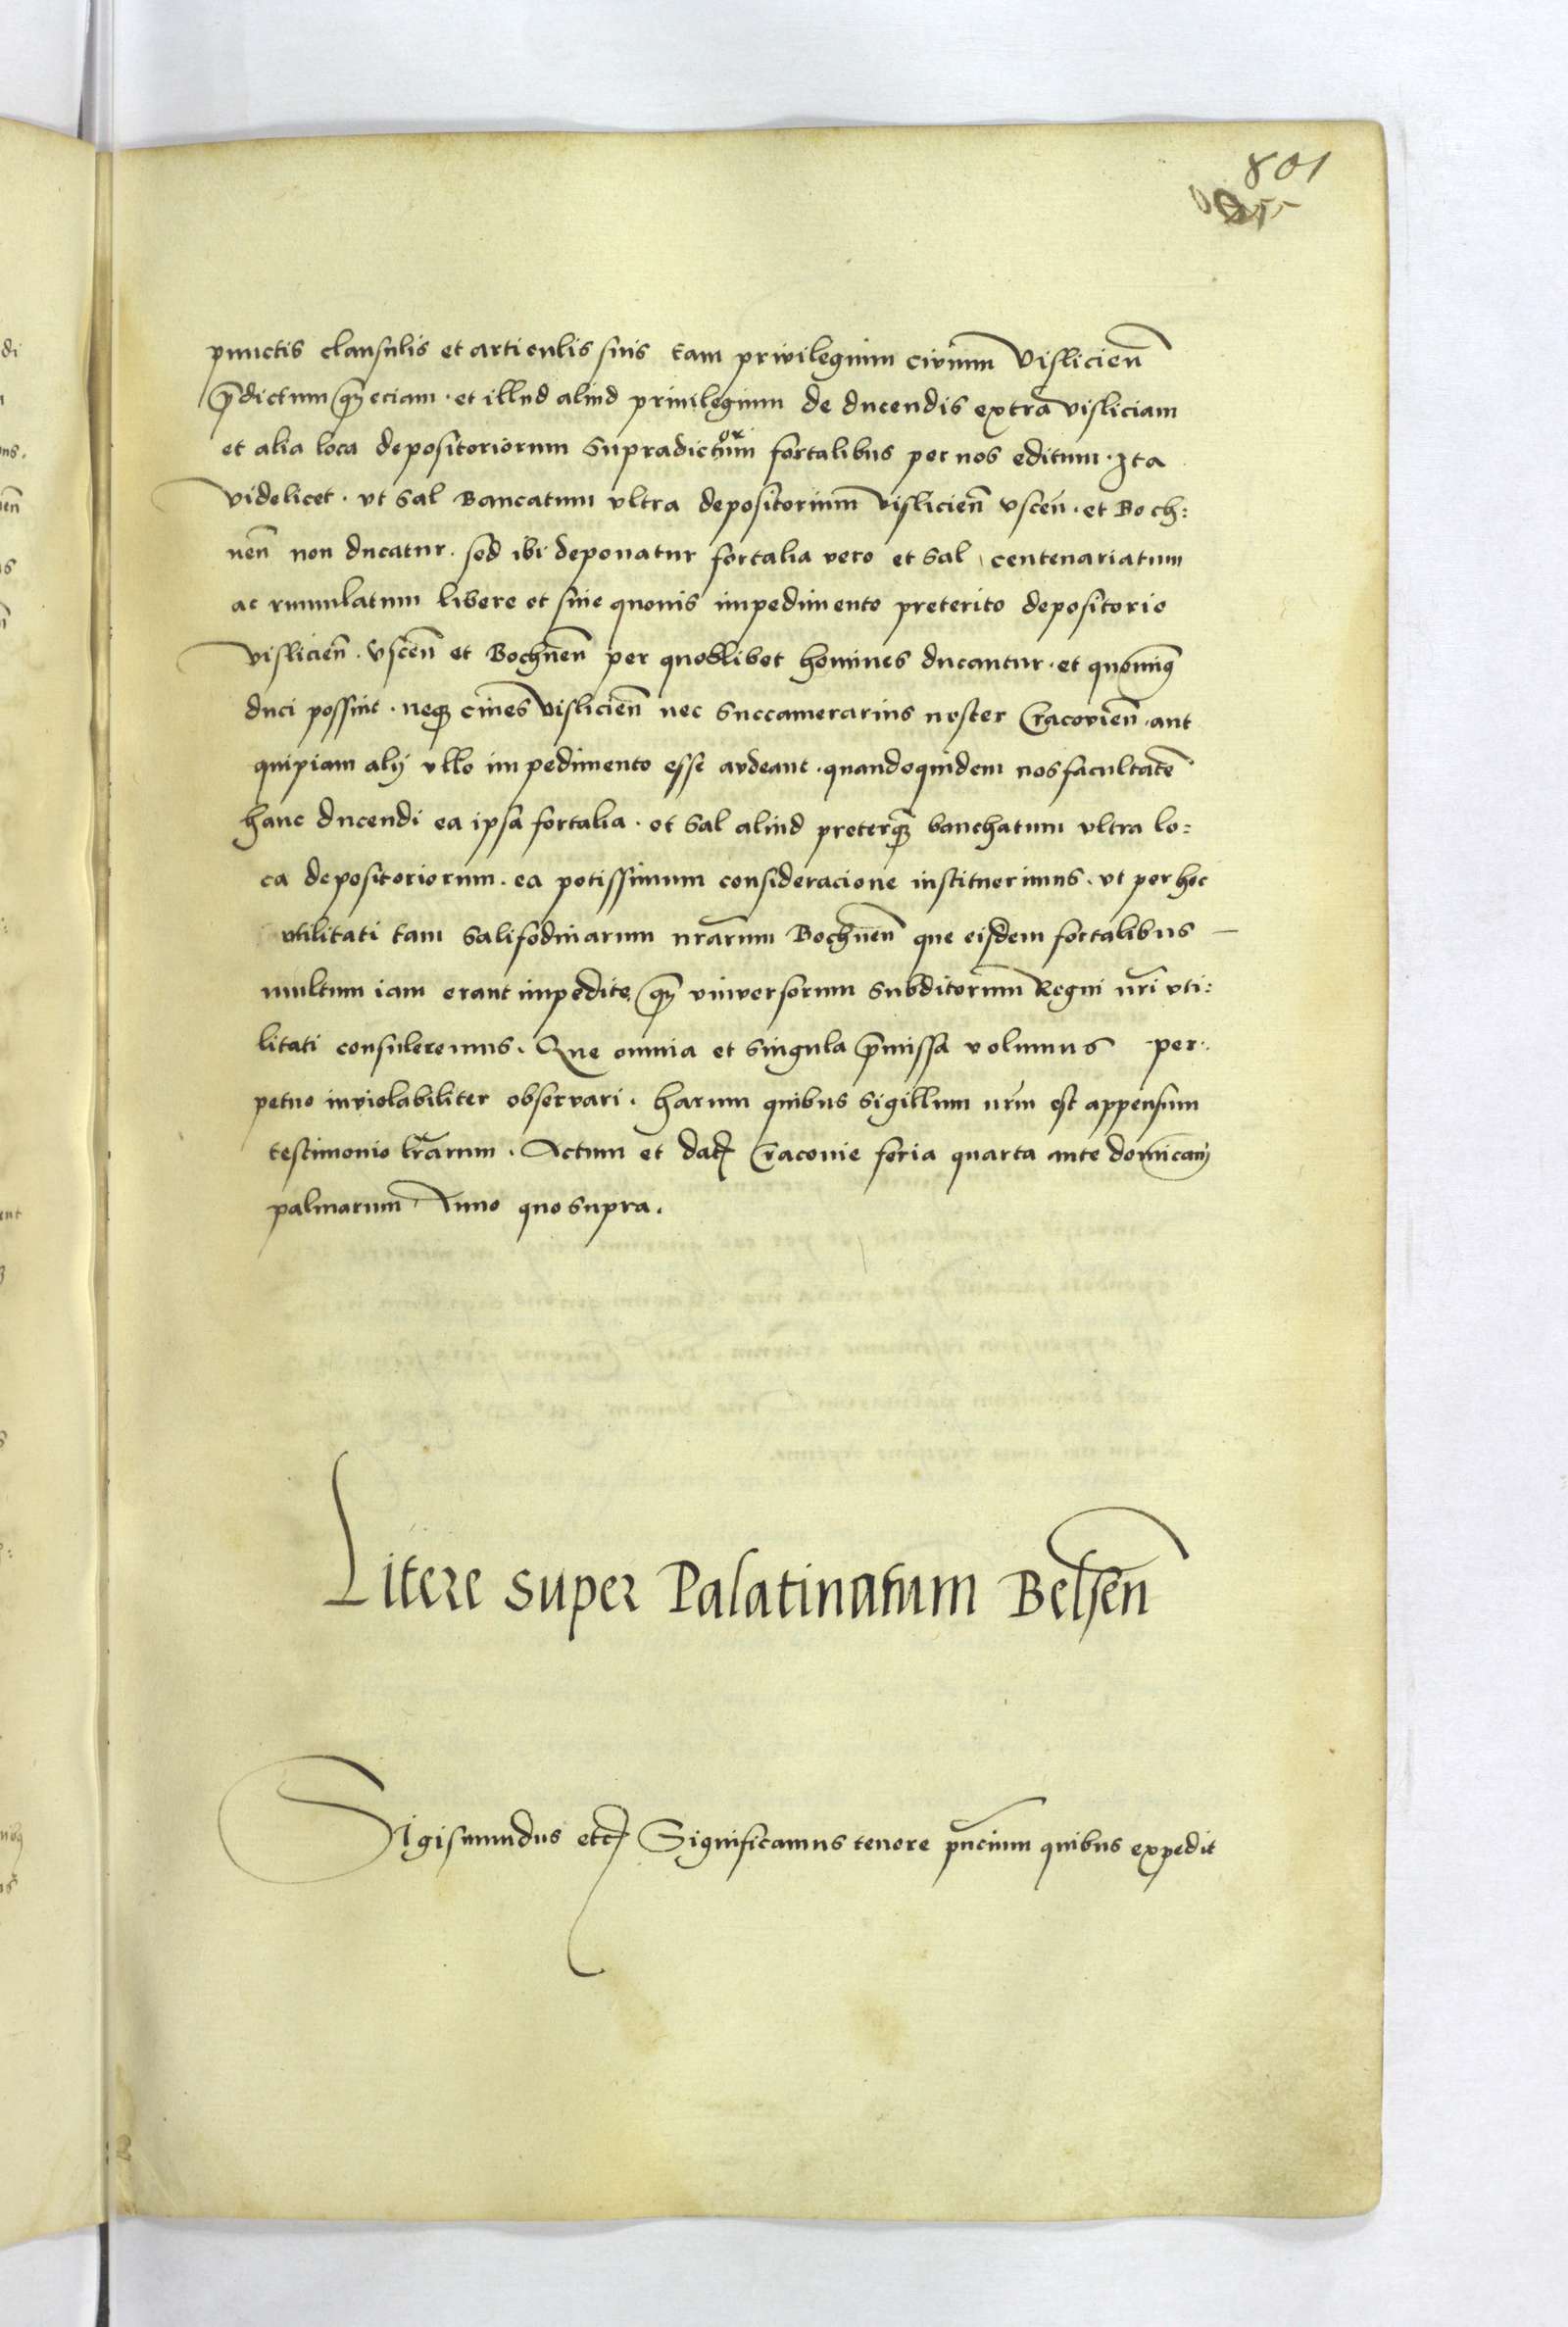 801
punctis clausulis et articulis suis tam privilegium civium Vislicieñ
p̄dictum q̄ȝ eciam · et illud aliud privilegium de ducendis extra visliciam
et alia loca depositoriorum supradictorum fortalibus per nos editum · Ita
videlicet · vt sal Bancatum vltra depositorium visliciēn vscēn · et Boch:
nēn non ducatur · sed ibi deponatur fortalia vero et sal centenariatum
ac rumulatum libere et sine quovis impedimento preterito depositorio
visliciēn · vscēn et Bochnēn per quoslibet homines ducantur · et quomīqȝ
duci possint · neqȝ cives visliciēn nec succamerarius noster Cracoviēn · aut
quipiam alij vllo impedimento esse audeant · quandoquidem nos facultatē
hanc ducendi ea ipsa fortalia · et sal aliud preterq̄ȝ banchatum vltra lo:
ca depositoriorum · ea potissimum consideracione instituerimus · vt per hec
vtilitati tam salifodinarum nrārum Bochnēn que eisdem fortalibus —
multum iam erant impedite, q̄ȝ vniversorum subditorum Regni nrī vti:
litati consuleremus · Que omnia et singula p̄missa volumus per:
petuo inviolabiliter observari · harum quibus sigillum nrm̄ est appensum
testimonio lrārum · Actum et datȝ Cracovie feria quarta ante domīcam
palmarum Anno quo supra ·
Litere super Palatinatum Belsen̄
Sigismundus etcȝ Significamus tenore pn̄cium quibus expedit